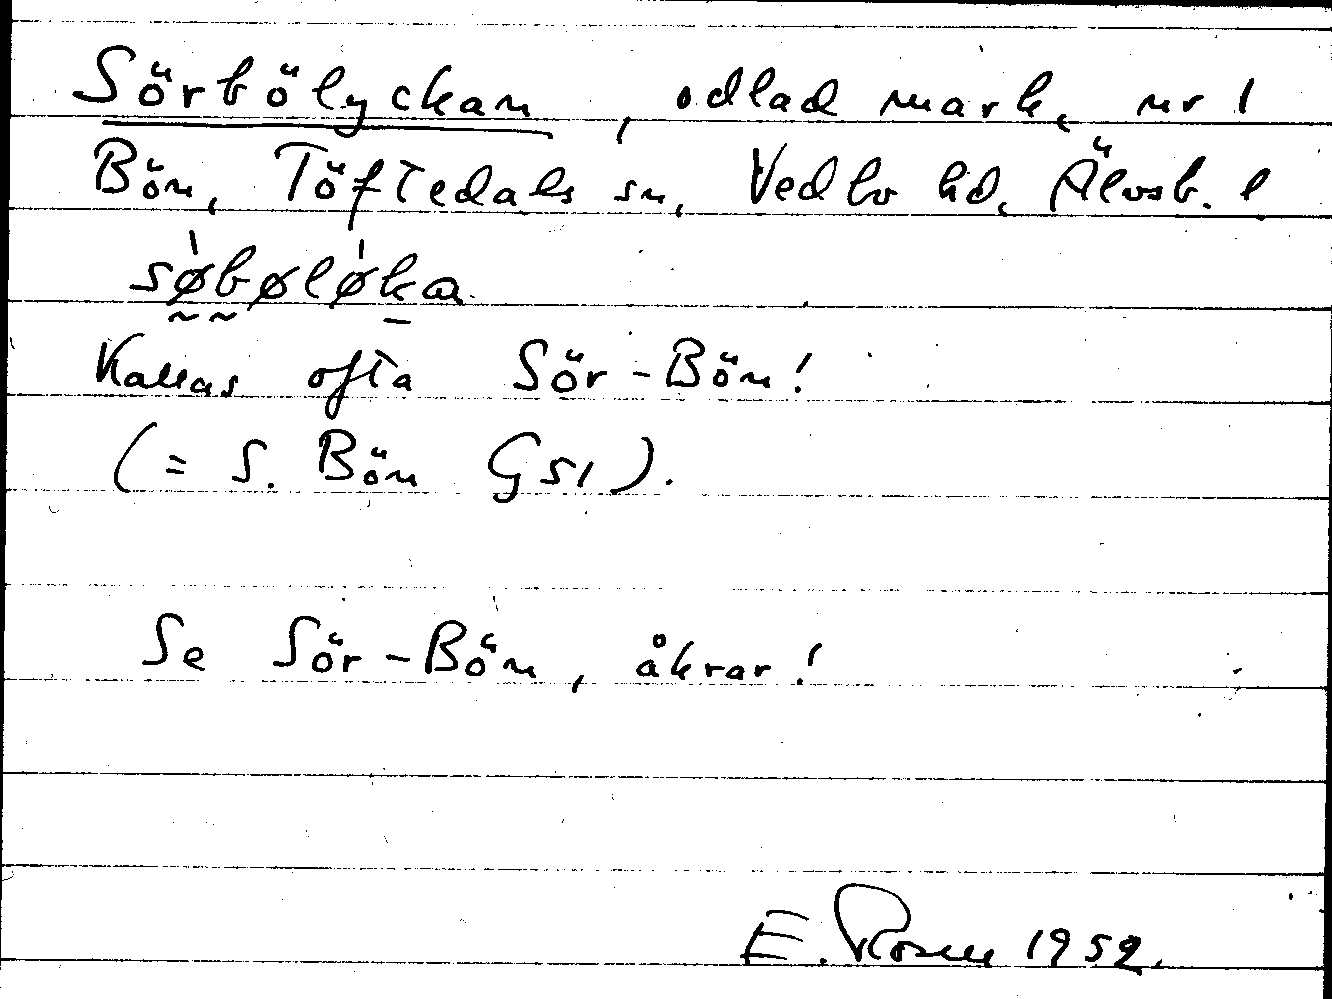 Sörbölyckan, odlad mark, nr 1
Bön, Töftedals sn, Vedbo hd, Älvsb. l
søbøløka
Kallas ofta Sör-Bön!
(= S. Bön GS1).
Se Sör-Bön, åkrar!
E. Rosen 1952.